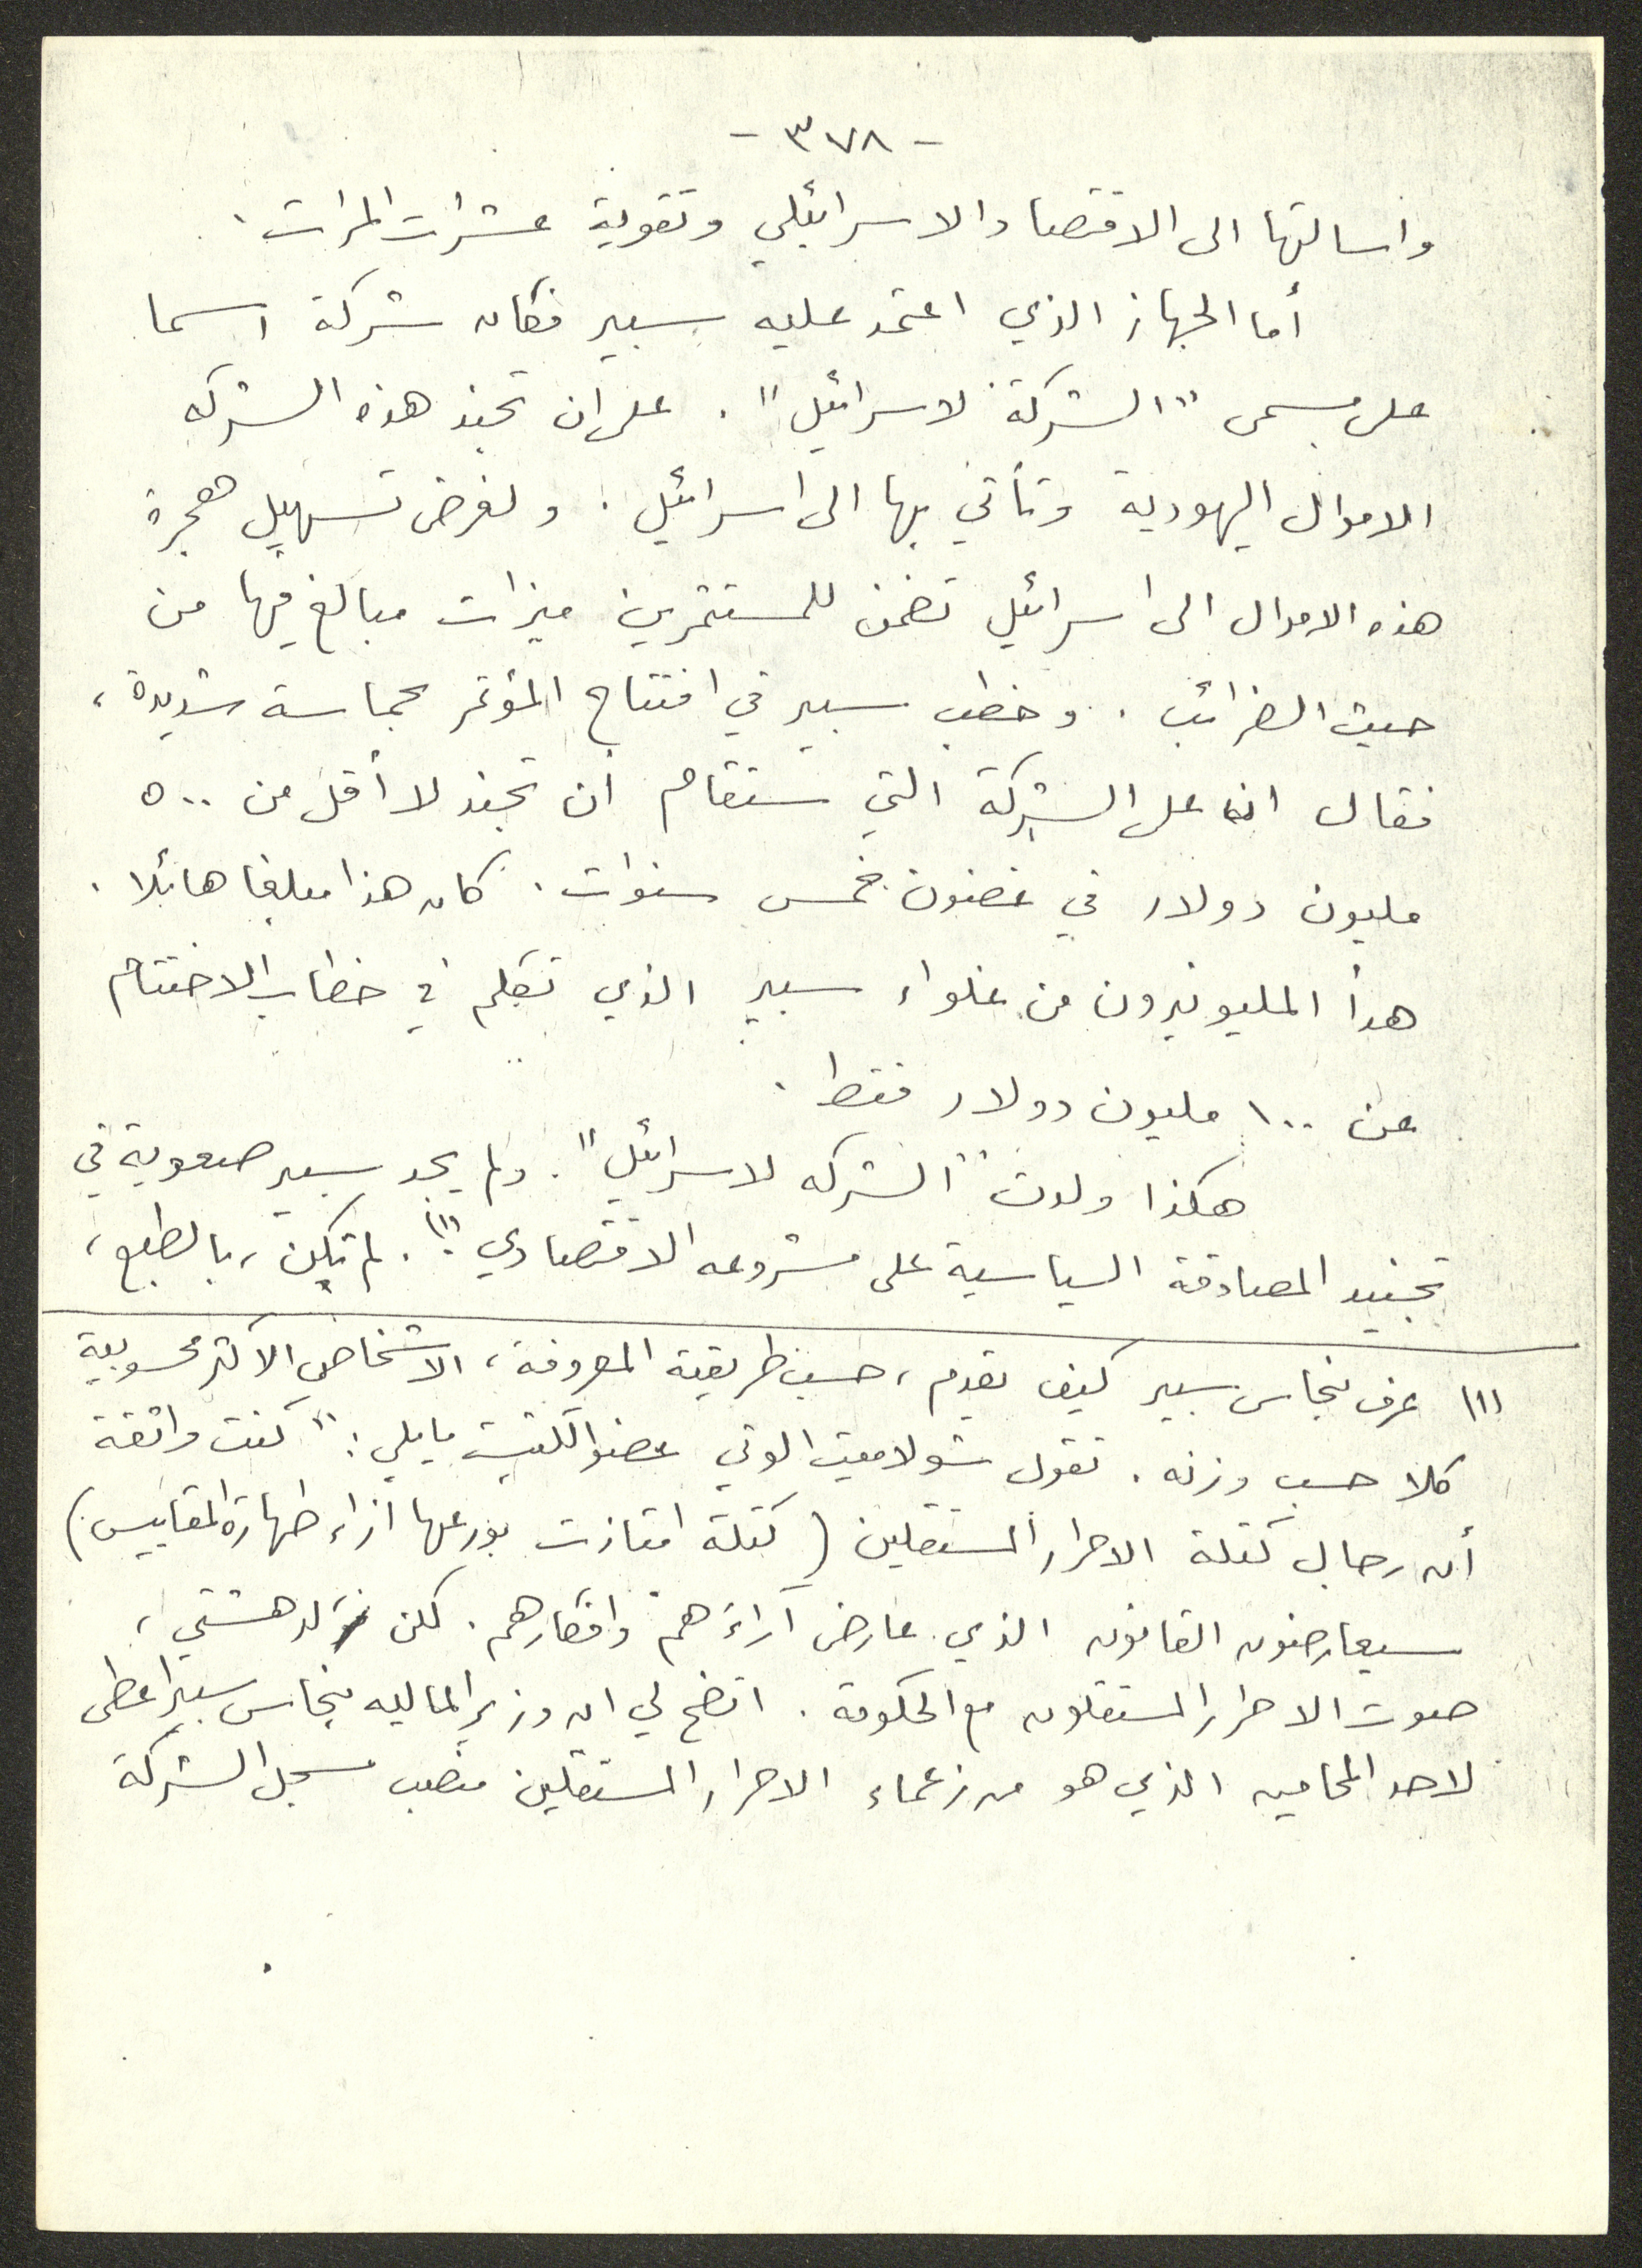 - ٣٧٨ -
واسالتها الى الاقتصاد الاسرائيلي وتقوية عشرات المرات.
أما الجهاز الذي اعتمد عليه سبير فكان شركة اسما
على مسمى "الشركة لاسرائيل". على ان تجند هذه الشركه
الاموال اليهودية وتأتي بها الى اسرائيل. ولغرض تسهيل هجرة
هذه الاموال الى اسرائيل تضمن للمستثمرين ميزات مبالغ فيها من
حيث الضرائب. وخطب سبير في افتتاح المؤتمر بحماسة شديدة،
فقال ان على الشركة التي ستقام أن تجند لا أقل من ٥٠٠
مليون دولار في غضون خمس سنوات. كان هذا مبلغا هائلا.
هدأ المليونيرون من غلواء سبير الذي تكلم في خطاب الاختتام
عن ١٠٠ مليون دولار فقط.
هكذا ولدت "الشركه لاسرائيل". ولم يجد سبير صعوبة في
تجنيد المصادقة السياسية على مشروعه الاقتصادي (١). لم تكن، بالطبع،
(١) عرف بنحاس سبير كيف يقدم، حسب طريقته المعروفة، الاشخاص الاكثر محسوبية
كلا حسب وزنه. تقول شولاميت الوني عضو الكنيست ما يلي: "كنت واثقة
أن رجال كتلة الاحرار المستقلين (كتلة امتازت بورعها ازاء طهارة المقاييس)
سيعارضون القانون الذي عارض آراءهم وافكارهم. لكن لدهشتي،
صوت الاحرار المستقلون مع الحكومة. اتضح لي ان وزير الماليه بنحاس سبير اعطى
لاحد المحامين الذي هو من زعماء الاحرار المستقلين منصب مسجل الشركة